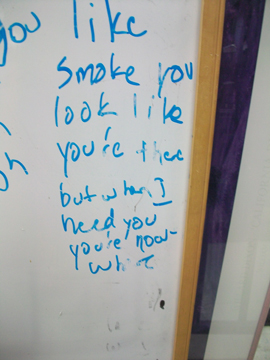 you like
smoke you
look like
you're thee
but when I
need you
you're now-
where